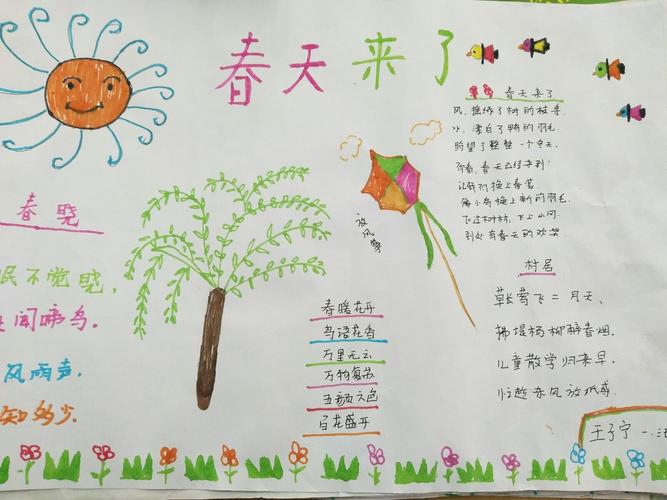 春天来了
春晓
眠不觉晓，
闻啼鸟。
风雨声，
知多少。
放风筝
春暖花开
鸟语花香
万里无云
万物复苏
五颜六色
百花盛开
春天来了
风，摇绿了树的枝条，
水，漂白了鸭的羽毛，
盼望了整整一个冬天，
你看，春天已经来到！
让我们换上春装，
像小鸟换上新的羽毛，
飞过树林，飞上山冈，
到处有春天的欢笑
村居
草长莺飞二月天，
拂堤杨柳醉春烟。
儿童散学归来早，
忙趁东风放纸鸢
王子宁